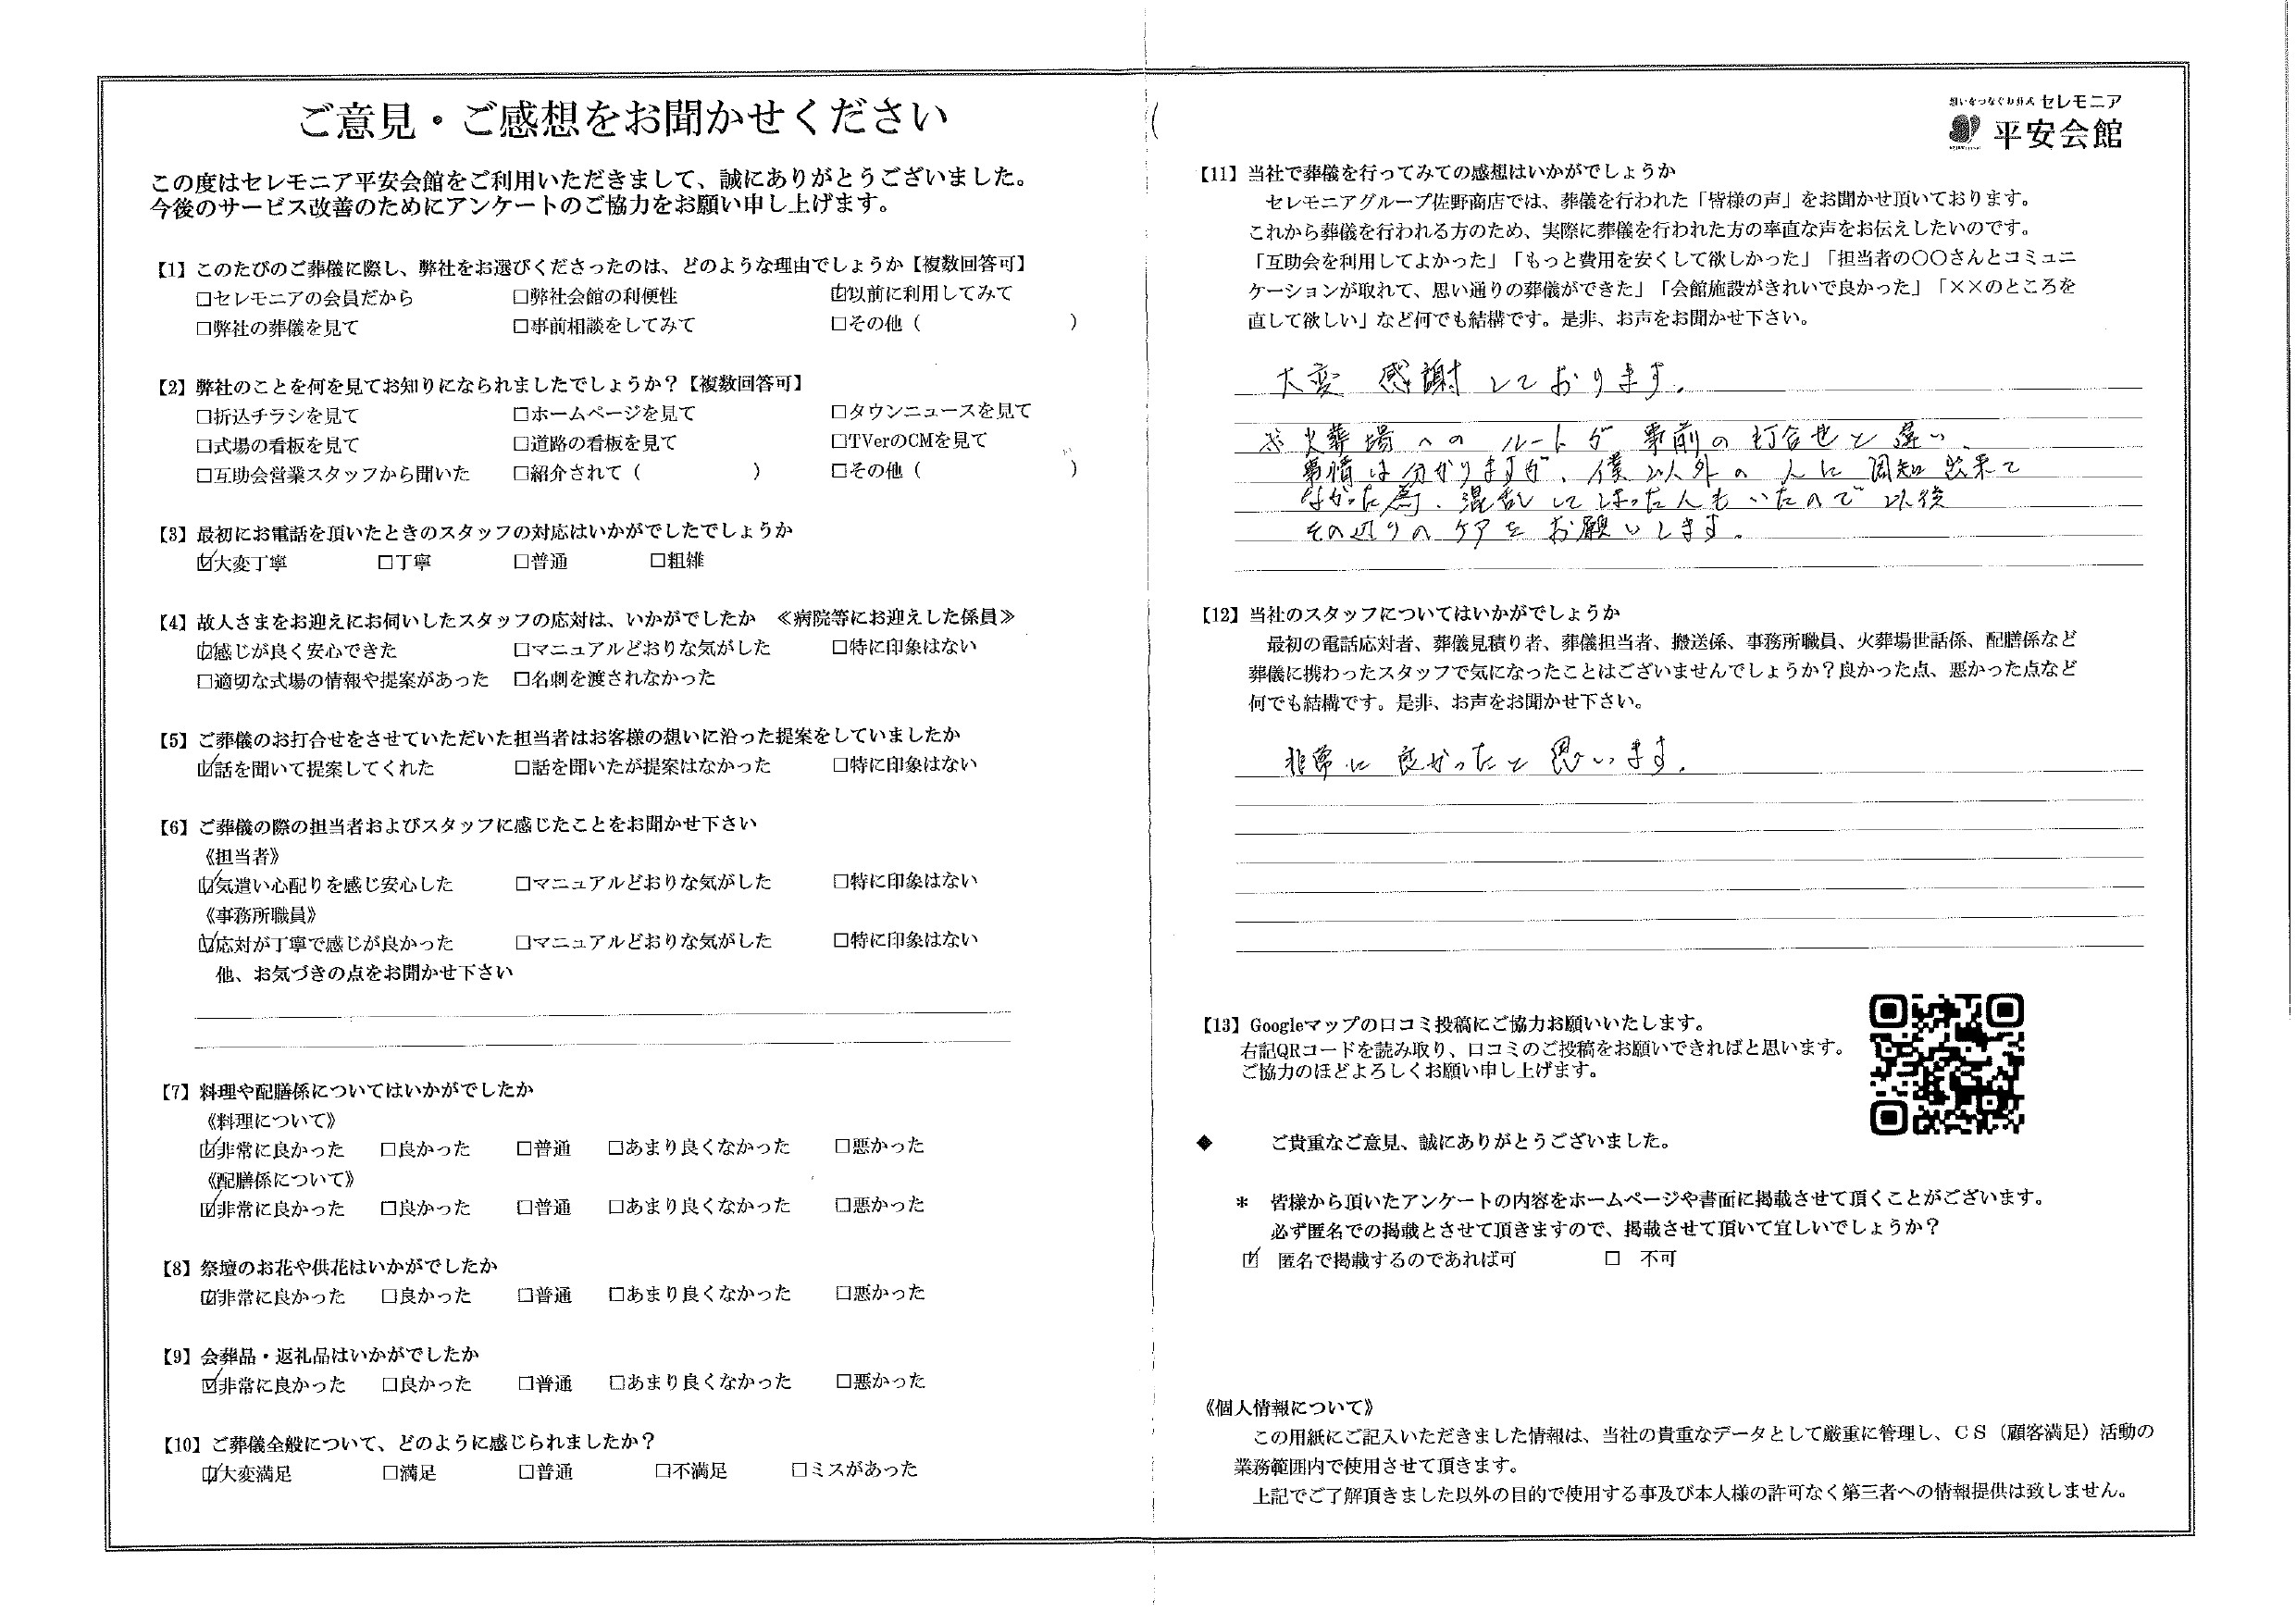 ご意見・ご感想をお聞かせください
この度はセレモニア平安会館をご利用いただきまして、誠にありがとうございました。
今後のサービス改善のためにアンケートのご協力をお願い申し上げます。
【1】このたびのご葬儀に際し、弊社をお選びくださったのは、どのような理由でしょうか【複数回答可】
□セレモニアの会員だから □弊社会館の利便性 ☑以前に利用してみて
□弊社の葬儀を見て □事前相談をしてみて □その他（ ）
【2】弊社のことを何を見てお知りになられましたでしょうか？【複数回答可】
□折込チラシを見て □ホームページを見て □タウンニュースを見て
□式場の看板を見て □道路の看板を見て □TVerのCMを見て
□互助会営業スタッフから聞いた □紹介されて（ ） □その他（ ）
【3】最初にお電話を頂いたときのスタッフの対応はいかがでしたでしょうか
☑大変丁寧 □丁寧 □普通 □粗雑
【4】故人さまをお迎えにお伺いしたスタッフの応対は、いかがでしたか ≪病院等にお迎えした係員≫
☑感じが良く安心できた □マニュアルどおりな気がした □特に印象はない
□適切な式場の情報や提案があった □名刺を渡されなかった
【5】ご葬儀のお打合せをさせていただいた担当者はお客様の想いに沿った提案をしていましたか
☑話を聞いて提案してくれた □話を聞いたが提案はなかった □特に印象はない
【6】ご葬儀の際の担当者およびスタッフに感じたことをお聞かせ下さい
《担当者》
☑気遣い心配りを感じ安心した □マニュアルどおりな気がした □特に印象はない
《事務所職員》
☑応対が丁寧で感じが良かった □マニュアルどおりな気がした □特に印象はない
他、お気づきの点をお聞かせ下さい
【7】料理や配膳係についてはいかがでしたか
《料理について》
☑非常に良かった □良かった □普通 □あまり良くなかった □悪かった
《配膳係について》
☑非常に良かった □良かった □普通 □あまり良くなかった □悪かった
【8】祭壇のお花や供花はいかがでしたか
☑非常に良かった □良かった □普通 □あまり良くなかった □悪かった
【9】会葬品・返礼品はいかがでしたか
☑非常に良かった □良かった □普通 □あまり良くなかった □悪かった
【10】ご葬儀全般について、どのように感じられましたか？
☑大変満足 □満足 □普通 □不満足 □ミスがあった
想いをつなぐお葬式 セレモニア
平安会館
【11】当社で葬儀を行ってみての感想はいかがでしょうか
セレモニアグループ佐野商店では、葬儀を行われた「皆様の声」をお聞かせ頂いております。
これから葬儀を行われる方のため、実際に葬儀を行われた方の率直な声をお伝えしたいのです。
「互助会を利用してよかった」「もっと費用を安くして欲しかった」「担当者の〇〇さんとコミュニ
ケーションが取れて、思い通りの葬儀ができた」「会館施設がきれいで良かった」「××のところを
直して欲しい」など何でも結構です。是非、お声をお聞かせ下さい。
大変 感謝しております。
※ 火葬場へのルートが事前の打合せと違い、
事情は分かりますが、僕以外の人に周知出来て
なかった為、混乱してしまった人もいたので以後
その辺りのケアをお願いします。
【12】当社のスタッフについてはいかがでしょうか
最初の電話応対者、葬儀見積り者、葬儀担当者、搬送係、事務所職員、火葬場世話係、配膳係など
葬儀に携わったスタッフで気になったことはございませんでしょうか？良かった点、悪かった点など
何でも結構です。是非、お声をお聞かせ下さい。
非常に良かったと思います。
【13】Googleマップの口コミ投稿にご協力お願いいたします。
右記QRコードを読み取り、口コミのご投稿をお願いできればと思います。
ご協力のほどよろしくお願い申し上げます。
◆ ご貴重なご意見、誠にありがとうございました。
＊ 皆様から頂いたアンケートの内容をホームページや書面に掲載させて頂くことがございます。
必ず匿名での掲載とさせて頂きますので、掲載させて頂いて宜しいでしょうか？
☑ 匿名で掲載するのであれば可 □ 不可
《個人情報について》
この用紙にご記入いただきました情報は、当社の貴重なデータとして厳重に管理し、ＣＳ（顧客満足）活動の
業務範囲内で使用させて頂きます。
上記でご了解頂きました以外の目的で使用する事及び本人様の許可なく第三者への情報提供は致しません。